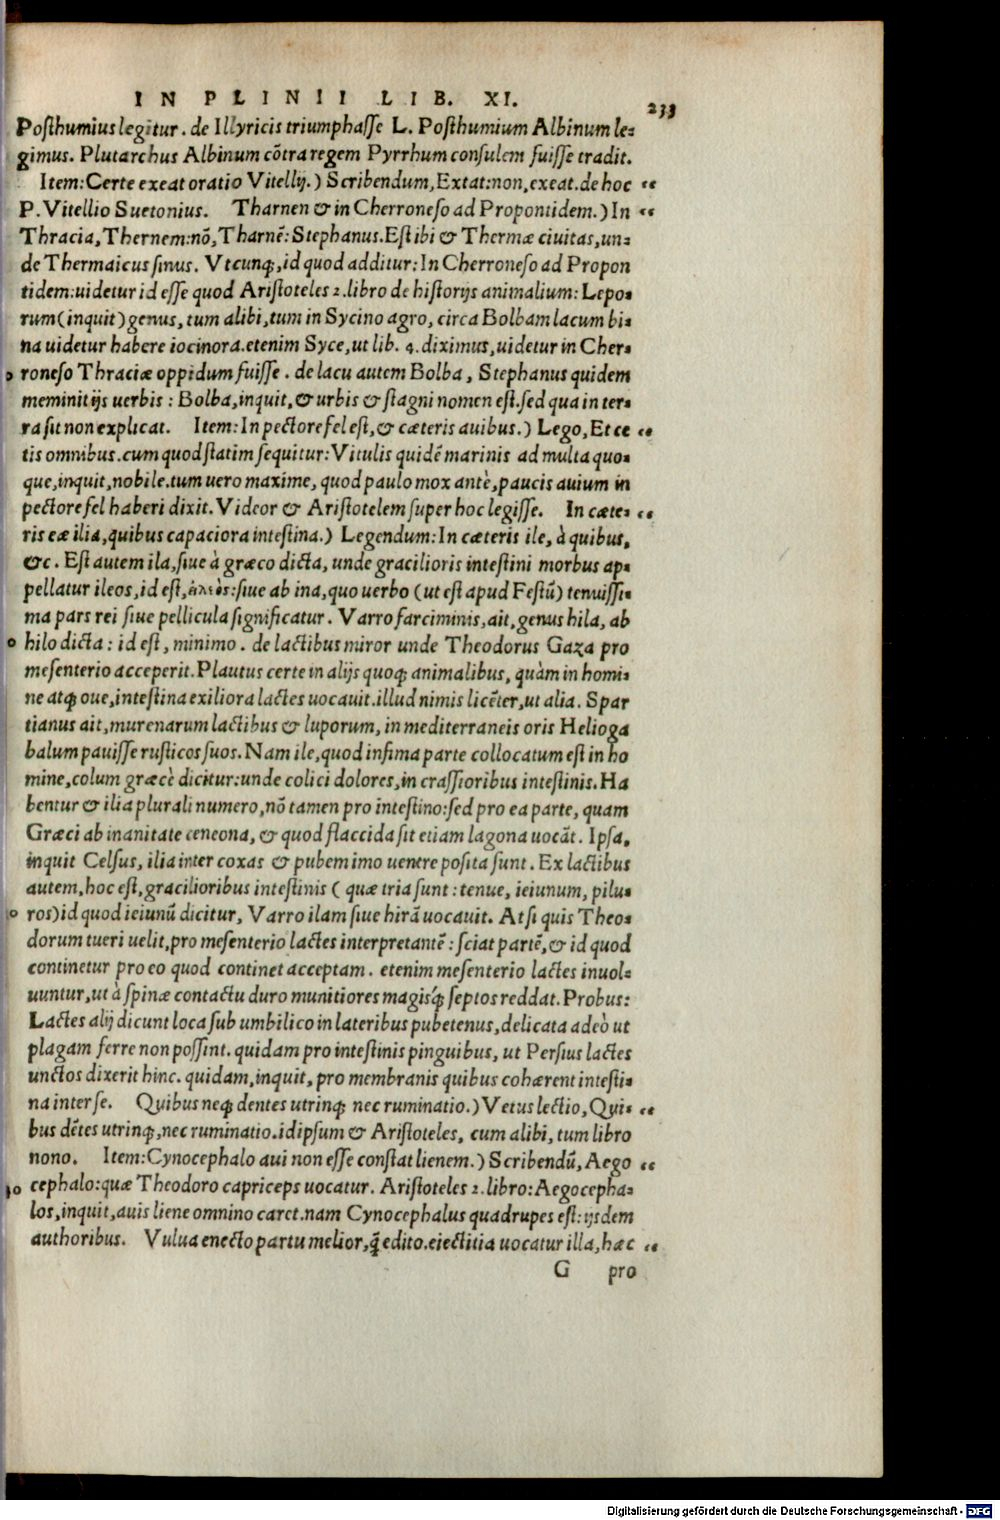 IN PLINII LIB. XI. 233
Posthumius legitur. de Illyricis triumphasse L. Posthumium Albinum le-
gimus. Plutarchus Albinum cõtra regem Pyrrhum consulem fuisse tradit.
Item: Certe exeat oratio Vitellij.) Scribendum, Extat: non, exeat. de hoc “
P. Vitellio Suetonius. Tharnen & in Cherroneso ad Propontidem.) In “
Thracia, Thernem: nõ, Tharnẽ: Stephanus. Est ibi & Thermæ ciuitas, un-
de Thermaicus sinus. Vtcunq;, id quod additur: In Cherroneso ad Propon
tidem: uidetur id esse quod Aristoteles 2. libro de historijs animalium: Lepo-
rum (inquit) genus, tum alibi, tum in Sycino agro, circa Bolbam lacum bi-
na uidetur habere iocinora. etenim Syce, ut lib. 4. diximus, uidetur in Cher-
roneso Thraciæ oppidum fuisse. de lacu autem Bolba, Stephanus quidem
meminit ijs uerbis: Bolba, inquit, & urbis & stagni nomen est. sed qua in ter-
ra sit non explicat. Item: In pectore fel est, & cæteris auibus.) Lego, Et ce “
tis omnibus. cum quod statim sequitur: Vitulis quidẽ marinis ad multa quo-
que, inquit, nobile. tum uero maxime, quod paulo mox antè, paucis auium in
pectore fel haberi dixit. Videor & Aristotelem super hoc legisse. In cæte- “
ris eæ ilia, quibus capaciora intestina.) Legendum: In cæteris ile, à quibus,
&c. Est autem ila, siue à græco dicta, unde gracilioris intestini morbus ap-
pellatur ileos, id est, ἀλεὸς: siue ab ina, quo uerbo (ut est apud Festũ) tenuissi-
ma pars rei siue pellicula significatur. Varro farciminis, ait, genus hila, ab
0 hilo dicta: id est, minimo. de lactibus miror unde Theodorus Gaza pro
mesenterio acceperit. Plautus certe in alijs quoq; animalibus, quàm in homi-
ne atq; oue, intestina exiliora lactes uocauit. illud nimis licẽter, ut alia. Spar
tianus ait, murenarum lactibus & luporum, in mediterraneis oris Helioga
balum pauisse rusticos suos. Nam ile, quod infima parte collocatum est in ho
mine, colum græcè dicitur: unde colici dolores, in crassioribus intestinis. Ha
bentur & ilia plurali numero, nõ tamen pro intestino: sed pro ea parte, quam
Græci ab inanitate ceneona, & quod flaccida sit etiam lagona uocãt. Ipsa,
inquit Celsus, ilia inter coxas & pubem imo uenere posita sunt. Ex lactibus
autem, hoc est, gracilioribus intestinis (quæ tria sunt: tenue, ieiunum, pilu-
0 ros) id quod ieiunũ dicitur, Varro ilam siue hirã uocauit. At si quis Theo-
dorum tueri uelit, pro mesenterio lactes interpretantẽ: sciat partẽ, & id quod
continetur pro eo quod continet acceptam. etenim mesenterio lactes inuol-
uuntur, ut à spinæ contactu duro munitiores magisq́; septos reddat. Probus:
Lactes alij dicunt loca sub umbilico in lateribus pubetenus, delicata adeò ut
plagam ferre non possint. quidam pro intestinis pinguibus, ut Persius lactes
unctos dixerit hinc. quidam, inquit, pro membranis quibus cohærent intesti-
na inter se. Quibus neq; dentes utrinq; nec ruminatio.) Vetus lectio, Qui- “
bus dẽtes utrinq;, nec ruminatio. id ipsum & Aristoteles, cum alibi, tum libro
nono. Item: Cynocephalo aui non esse constat lienem.) Scribendũ, Aego “
40 cephalo: quæ Theodoro capriceps uocatur. Aristoteles 2. libro: Aegocepha-
los, inquit, auis liene omnino caret. nam Cynocephalus quadrupes est: ijsdem
authoribus. Vulua enecto partu melior, q̃ edito. eiectitia uocatur illa, hæc “
G pro
Digitalisierung gefördert durch die Deutsche Forschungsgemeinschaft - DFG